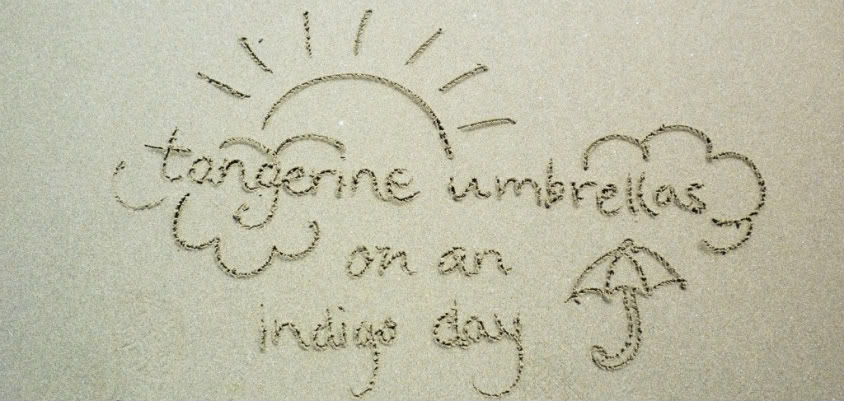 tangerine umbrellas
on an
indigo day